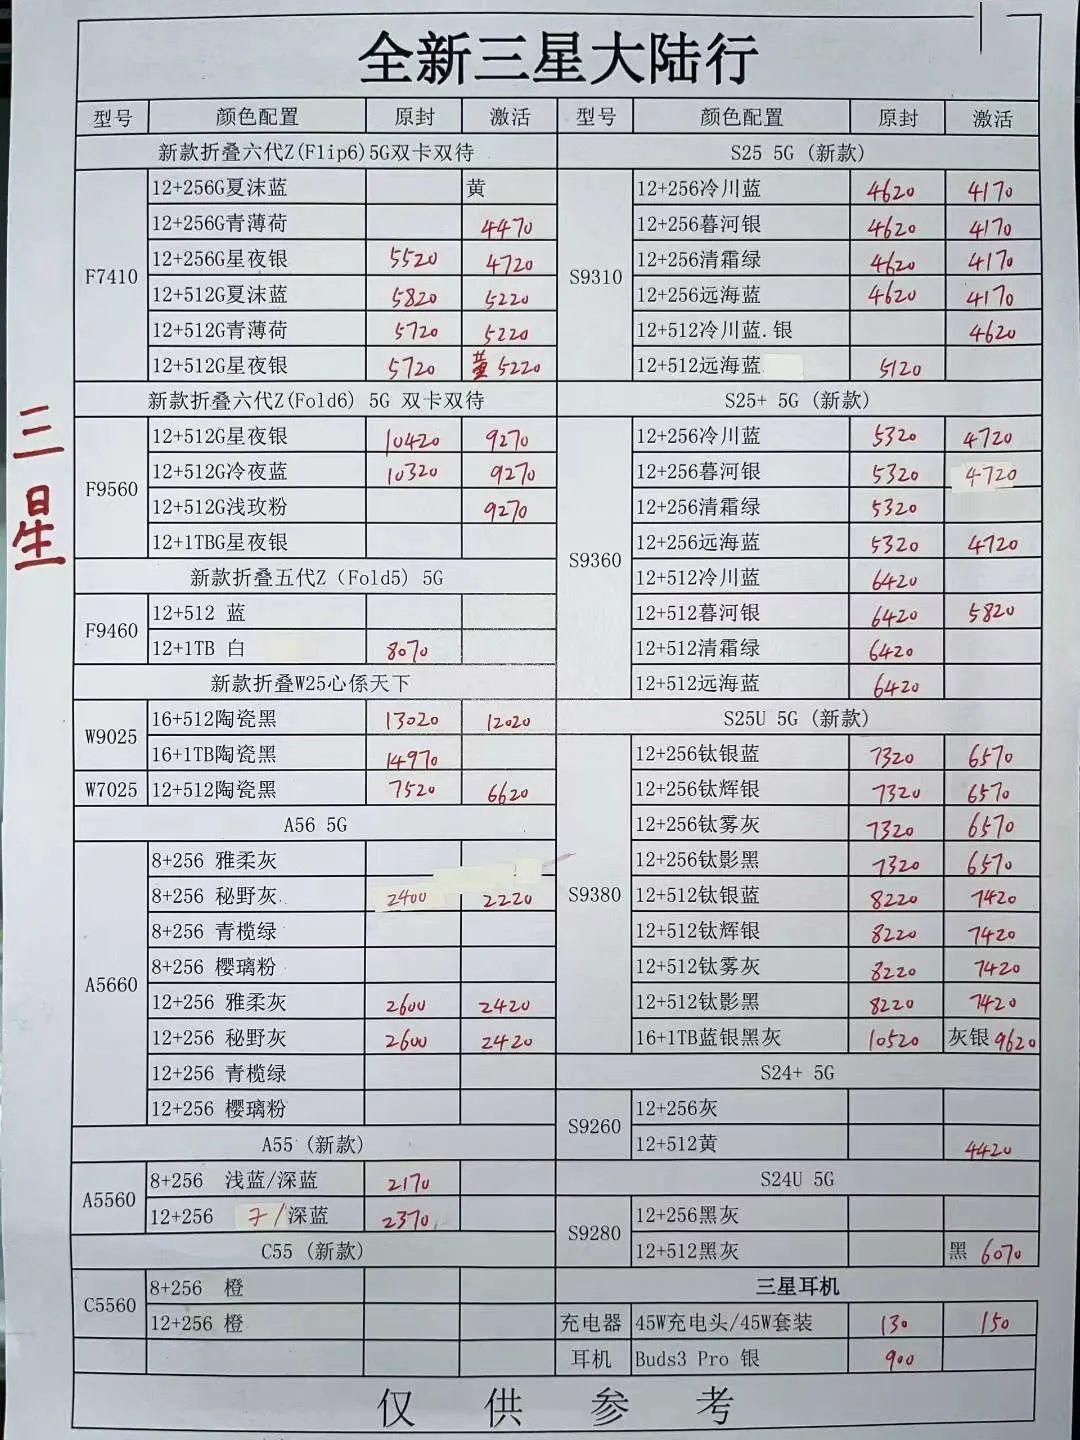 全新三星大陆行
型号 颜色配置 原封 激活
新款折叠六代Z(Flip6)5G双卡双待
F7410
12+256G夏沫蓝 黄
12+256G青薄荷 4470
12+256G星夜银 5520 4720
12+512G夏沫蓝 5820 5220
12+512G青薄荷 5720 5220
12+512G星夜银 5720 黄 5220
新款折叠六代Z(Fold6) 5G 双卡双待
F9560
12+512G星夜银 10420 9270
12+512G冷夜蓝 10320 9270
12+512G浅玫粉 9270
12+1TBG星夜银
新款折叠五代Z（Fold5) 5G
F9460
12+512 蓝
12+1TB 白 8070
新款折叠W25心係天下
W9025
16+512陶瓷黑 13020 12020
16+1TB陶瓷黑 14970
W7025 12+512陶瓷黑 7520 6620
A56 5G
A5660
8+256 雅柔灰
8+256 秘野灰 2400 2220
8+256 青榄绿
8+256 樱璃粉
12+256 雅柔灰 2600 2420
12+256 秘野灰 2600 2420
12+256 青榄绿
12+256 樱璃粉
A55 (新款)
A5560
8+256 浅蓝/深蓝 2170
12+256 /深蓝 2370
C55 (新款)
C5560
8+256 橙
12+256 橙
型号 颜色配置 原封 激活
S25 5G (新款)
S9310
12+256冷川蓝 4620 4170
12+256暮河银 4620 4170
12+256清霜绿 4620 4170
12+256远海蓝 4620 4170
12+512冷川蓝.银 4620
12+512远海蓝 5120
S25+ 5G (新款)
S9360
12+256冷川蓝 5320 4720
12+256暮河银 5320 4720
12+256清霜绿 5320
12+256远海蓝 5320 4720
12+512冷川蓝 6420
12+512暮河银 6420 5820
12+512清霜绿 6420
12+512远海蓝 6420
S25U 5G (新款)
S9380
12+256钛银蓝 7320 6570
12+256钛辉银 7320 6570
12+256钛雾灰 7320 6570
12+256钛影黑 7320 6570
12+512钛银蓝 8220 7420
12+512钛辉银 8220 7420
12+512钛雾灰 8220 7420
12+512钛影黑 8220 7420
16+1TB蓝银黑灰 10520 灰银 9620
S24+ 5G
S9260
12+256灰
12+512黄 4420
S24U 5G
S9280
12+256黑灰
12+512黑灰 黑 6070
三星耳机
充电器 45W充电头/45W套装 130 150
耳机 Buds3 Pro 银 900
仅供参考
三星